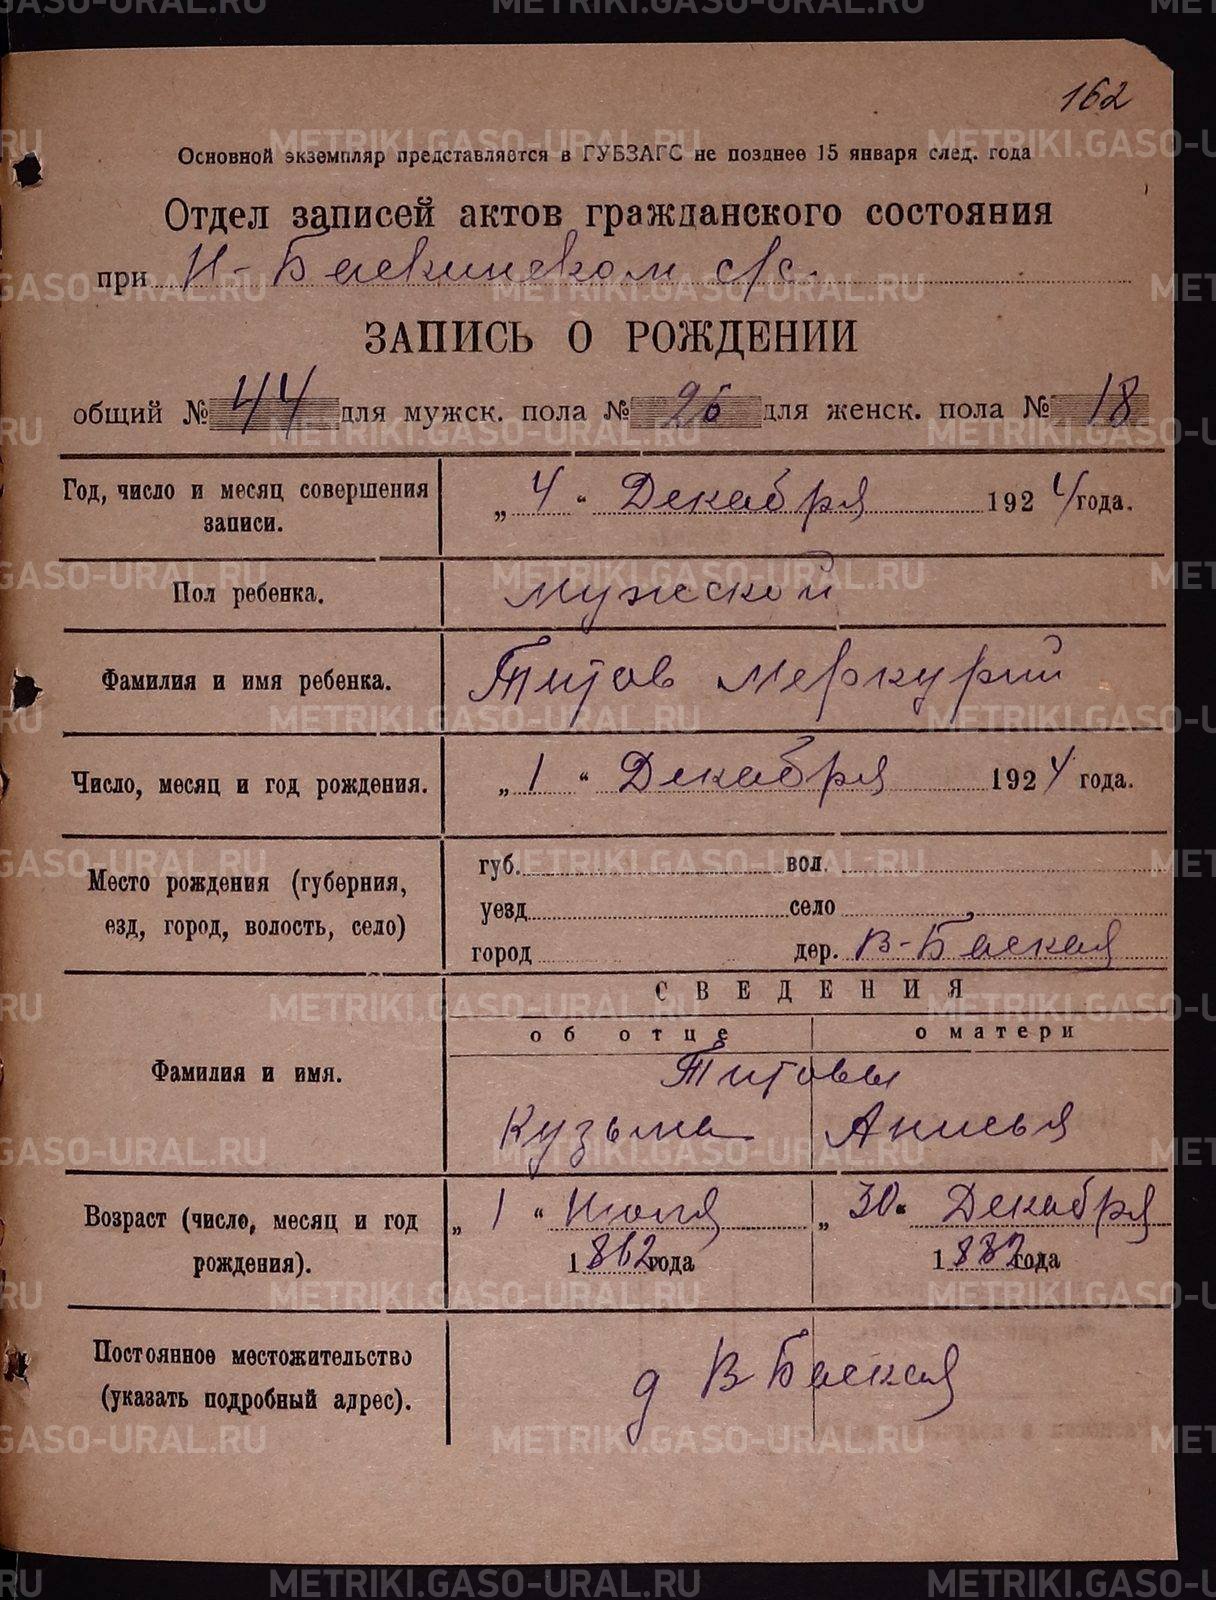 162
Основной экземпляр представляется в ГУБЗАГС не позднее 15 января след. года
Отдел записей актов гражданского состояния
при Н-Баскинском с/с.
ЗАПИСЬ О РОЖДЕНИИ
общий № 44 для мужск. пола № 26 для женск. пола № 18
Год, число и месяц совершения записи. „ 4 “ Декабря 1924 года.
Пол ребенка. Мужской
Фамилия и имя ребенка. Титов Меркурий
Число, месяц и год рождения. „ 1 “ Декабря 1924 года.
Место рождения (губерния, езд, город, волость, село)
губ. вол.
уезд село
город дер. В-Баская
СВЕДЕНИЯ
об отце о матери
Фамилия и имя. Титовы
Кузьма Анисья
Возраст (число, месяц и год рождения). „ 1 “ Июля 1862 года „ 30 “ Декабря 1882 года
Постоянное местожительство (указать подробный адрес). д В Баская
METRIKI.GASO-URAL.RU